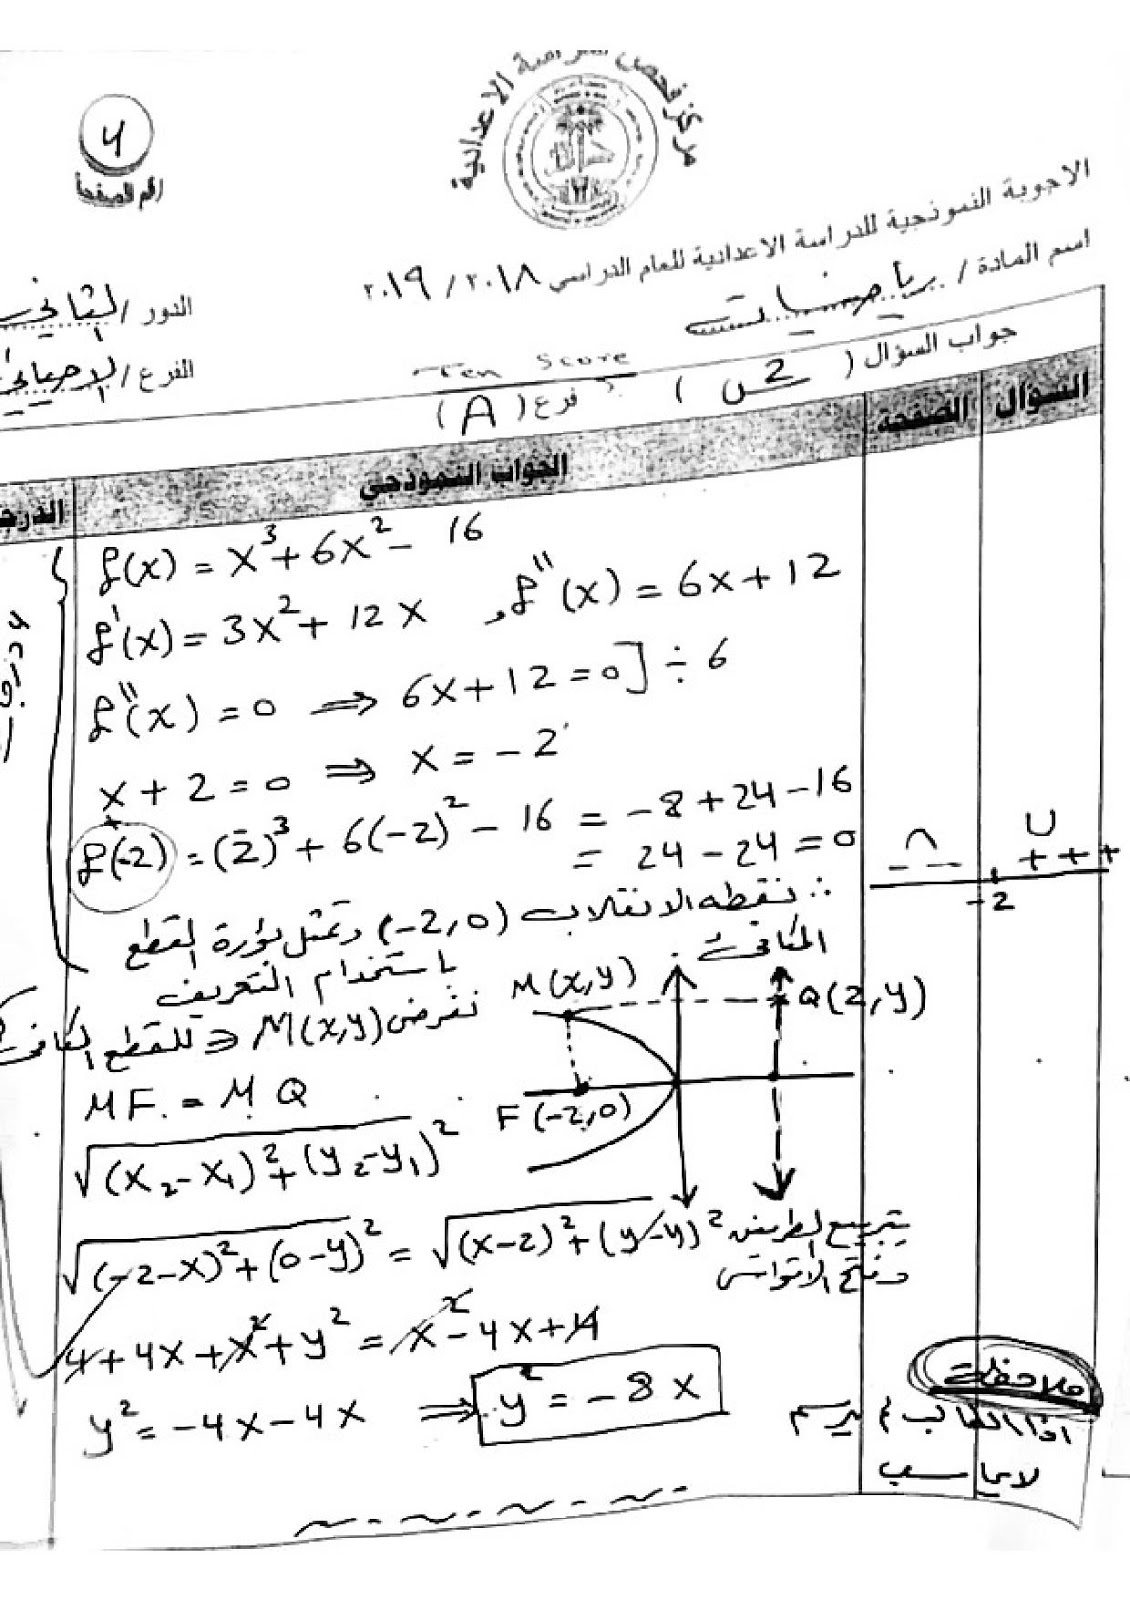 مركز فحص الدراسة الاعدادية
4
رقم الصفحة
الاجوبة النموذجية للدراسة الاعدادية للعام الدراسي ٢٠١٨ / ٢٠١٩
اسم المادة / رياضيات
الدور / الثاني
الفرع / الاحيائي
Ten Score
جواب السؤال ( س2 ) فرع ( A )
السؤال الصفحة الجواب النموذجي الدرجة
f(x) = x³ + 6x² - 16
f'(x) = 3x² + 12x , f''(x) = 6x + 12
f''(x) = 0 ⇒ 6x + 12 = 0] ÷ 6
x + 2 = 0 ⇒ x = -2
f(-2) = (-2)³ + 6(-2)² - 16 = -8 + 24 - 16
= 24 - 24 = 0
∩ ∪
- - - + + +
-2
∴ نقطة الانقلاب (-2,0) وتمثل بؤرة القطع
المكافئ
باستخدام التعريف
نفرض M(x,y) ∈ للقطع المكافئ
M(x,y) Q(2,y)
F(-2,0)
MF = MQ
√(x₂-x₁)² + (y₂-y₁)²
√(-2-x)² + (0-y)² = √(x-2)² + (y-y)² بتربيع الطرفين
وفتح الاقواس
4 + 4x + x² + y² = x² - 4x + 4
y² = -4x - 4x ⇒ y² = -8x
ملاحظة
اذا الطالب لم يرسم
لا يحاسب